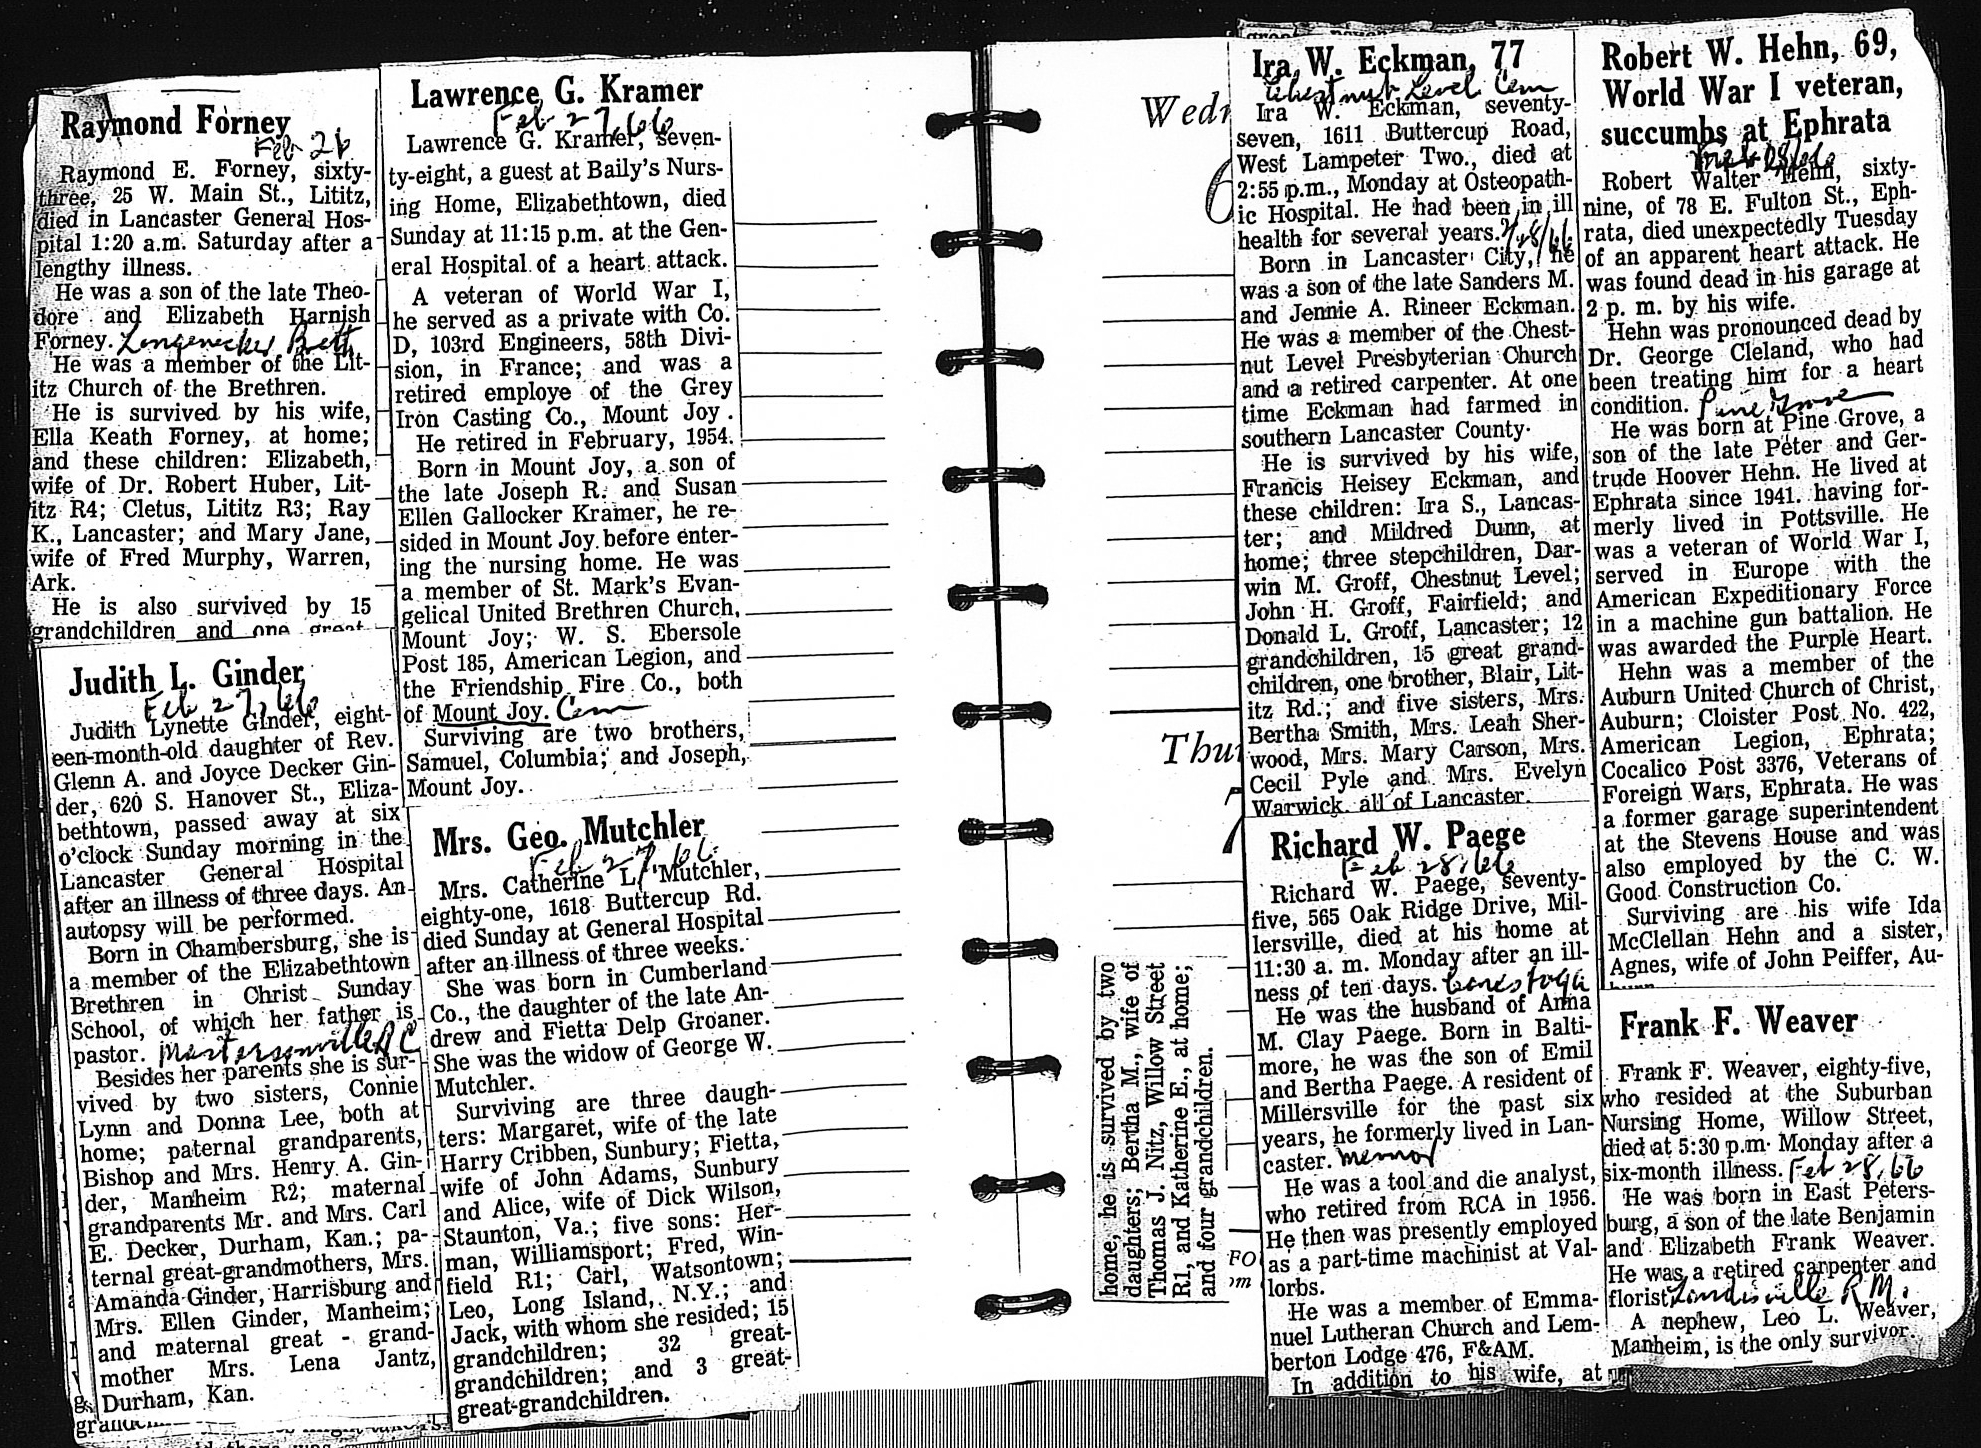 Raymond Forney
Feb 26
Raymond E. Forney, sixty-
three, 25 W. Main St., Lititz,
died in Lancaster General Hos-
pital 1:20 a.m. Saturday after a
lengthy illness.
He was a son of the late Theo-
dore and Elizabeth Harnish
Forney. Longenecker Breth
He was a member of the Lit-
itz Church of the Brethren.
He is survived by his wife,
Ella Keath Forney, at home;
and these children: Elizabeth,
wife of Dr. Robert Huber, Lit-
itz R4; Cletus, Lititz R3; Ray
K., Lancaster; and Mary Jane,
wife of Fred Murphy, Warren,
Ark.
He is also survived by 15
grandchildren and one great-
Judith L. Ginder
Feb 27, 66
Judith Lynette Ginder, eight-
een-month-old daughter of Rev.
Glenn A. and Joyce Decker Gin-
der, 620 S. Hanover St., Eliza-
bethtown, passed away at six
o'clock Sunday morning in the
Lancaster General Hospital
after an illness of three days. An
autopsy will be performed.
Born in Chambersburg, she is
a member of the Elizabethtown
Brethren in Christ Sunday
School, of which her father is
pastor. Mastersonville BC
Besides her parents she is sur-
vived by two sisters, Connie
Lynn and Donna Lee, both at
home; paternal grandparents,
Bishop and Mrs. Henry A. Gin-
der, Manheim R2; maternal
grandparents Mr. and Mrs. Carl
E. Decker, Durham, Kan.; pa-
ternal great-grandmothers, Mrs.
Amanda Ginder, Harrisburg and
Mrs. Ellen Ginder, Manheim;
and maternal great - grand-
mother Mrs. Lena Jantz,
Durham, Kan.
Lawrence G. Kramer
Feb 27, 66
Lawrence G. Kramer, seven-
ty-eight, a guest at Baily's Nurs-
ing Home, Elizabethtown, died
Sunday at 11:15 p.m. at the Gen-
eral Hospital of a heart attack.
A veteran of World War I,
he served as a private with Co.
D, 103rd Engineers, 58th Divi-
sion, in France; and was a
retired employe of the Grey
Iron Casting Co., Mount Joy.
He retired in February, 1954.
Born in Mount Joy, a son of
the late Joseph R. and Susan
Ellen Gallocker Kramer, he re-
sided in Mount Joy before enter-
ing the nursing home. He was
a member of St. Mark's Evan-
gelical United Brethren Church,
Mount Joy; W. S. Ebersole
Post 185, American Legion, and
the Friendship Fire Co., both
of Mount Joy. Cem
Surviving are two brothers,
Samuel, Columbia; and Joseph,
Mount Joy.
Mrs. Geo. Mutchler
Feb 27, 66
Mrs. Catherine L. Mutchler,
eighty-one, 1618 Buttercup Rd.
died Sunday at General Hospital
after an illness of three weeks.
She was born in Cumberland
Co., the daughter of the late An-
drew and Fietta Delp Groaner.
She was the widow of George W.
Mutchler.
Surviving are three daugh-
ters: Margaret, wife of the late
Harry Cribben, Sunbury; Fietta,
wife of John Adams, Sunbury
and Alice, wife of Dick Wilson,
Staunton, Va.; five sons: Her-
man, Williamsport; Fred, Win-
field R1; Carl, Watsontown;
Leo, Long Island, N.Y.; and
Jack, with whom she resided; 15
grandchildren; 32 great-
grandchildren; and 3 great-
great-grandchildren.
Wedn
6
Thu
7
home, he is survived by two
daughters; Bertha M., wife of
Thomas J. Nitz, Willow Street
R1, and Katherine E., at home;
and four grandchildren.
FO
om
Ira W. Eckman, 77
Chestnut Level Cem
Ira W. Eckman, seventy-
seven, 1611 Buttercup Road,
West Lampeter Two., died at
2:55 p.m., Monday at Osteopath-
ic Hospital. He had been in ill
health for several years. 2/28/66
Born in Lancaster City, he
was a son of the late Sanders M.
and Jennie A. Rineer Eckman.
He was a member of the Chest-
nut Level Presbyterian Church
and a retired carpenter. At one
time Eckman had farmed in
southern Lancaster County.
He is survived by his wife,
Francis Heisey Eckman, and
these children: Ira S., Lancas-
ter; and Mildred Dunn, at
home; three stepchildren, Dar-
win M. Groff, Chestnut Level;
John H. Groff, Fairfield; and
Donald L. Groff, Lancaster; 12
grandchildren, 15 great grand-
children, one brother, Blair, Lit-
itz Rd.; and five sisters, Mrs.
Bertha Smith, Mrs. Leah Sher-
wood, Mrs. Mary Carson, Mrs.
Cecil Pyle and Mrs. Evelyn
Warwick, all of Lancaster.
Richard W. Paege
Feb 28, 66
Richard W. Paege, seventy-
five, 565 Oak Ridge Drive, Mil-
lersville, died at his home at
11:30 a. m. Monday after an ill-
ness of ten days. Conestoga
He was the husband of Anna
M. Clay Paege. Born in Balti-
more, he was the son of Emil
and Bertha Paege. A resident of
Millersville for the past six
years, he formerly lived in Lan-
caster. Memor
He was a tool and die analyst,
who retired from RCA in 1956.
He then was presently employed
as a part-time machinist at Val-
lorbs.
He was a member of Emma-
nuel Lutheran Church and Lem-
berton Lodge 476, F&AM.
In addition to his wife, at
Robert W. Hehn, 69,
World War I veteran,
succumbs at Ephrata
Robert Walter Hehn, sixty-
nine, of 78 E. Fulton St., Eph-
rata, died unexpectedly Tuesday
of an apparent heart attack. He
was found dead in his garage at
2 p. m. by his wife.
Hehn was pronounced dead by
Dr. George Cleland, who had
been treating him for a heart
condition. Pine Grove
He was born at Pine Grove, a
son of the late Peter and Ger-
trude Hoover Hehn. He lived at
Ephrata since 1941. having for-
merly lived in Pottsville. He
was a veteran of World War I,
served in Europe with the
American Expeditionary Force
in a machine gun battalion. He
was awarded the Purple Heart.
Hehn was a member of the
Auburn United Church of Christ,
Auburn; Cloister Post No. 422,
American Legion, Ephrata;
Cocalico Post 3376, Veterans of
Foreign Wars, Ephrata. He was
a former garage superintendent
at the Stevens House and was
also employed by the C. W.
Good Construction Co.
Surviving are his wife Ida
McClellan Hehn and a sister,
Agnes, wife of John Peiffer, Au-
Frank F. Weaver
Frank F. Weaver, eighty-five,
who resided at the Suburban
Nursing Home, Willow Street,
died at 5:30 p.m. Monday after a
six-month illness. Feb 28, 66
He was born in East Peters-
burg, a son of the late Benjamin
and Elizabeth Frank Weaver.
He was a retired carpenter and
florist. Landisville R.M.
A nephew, Leo L. Weaver,
Manheim, is the only survivor.